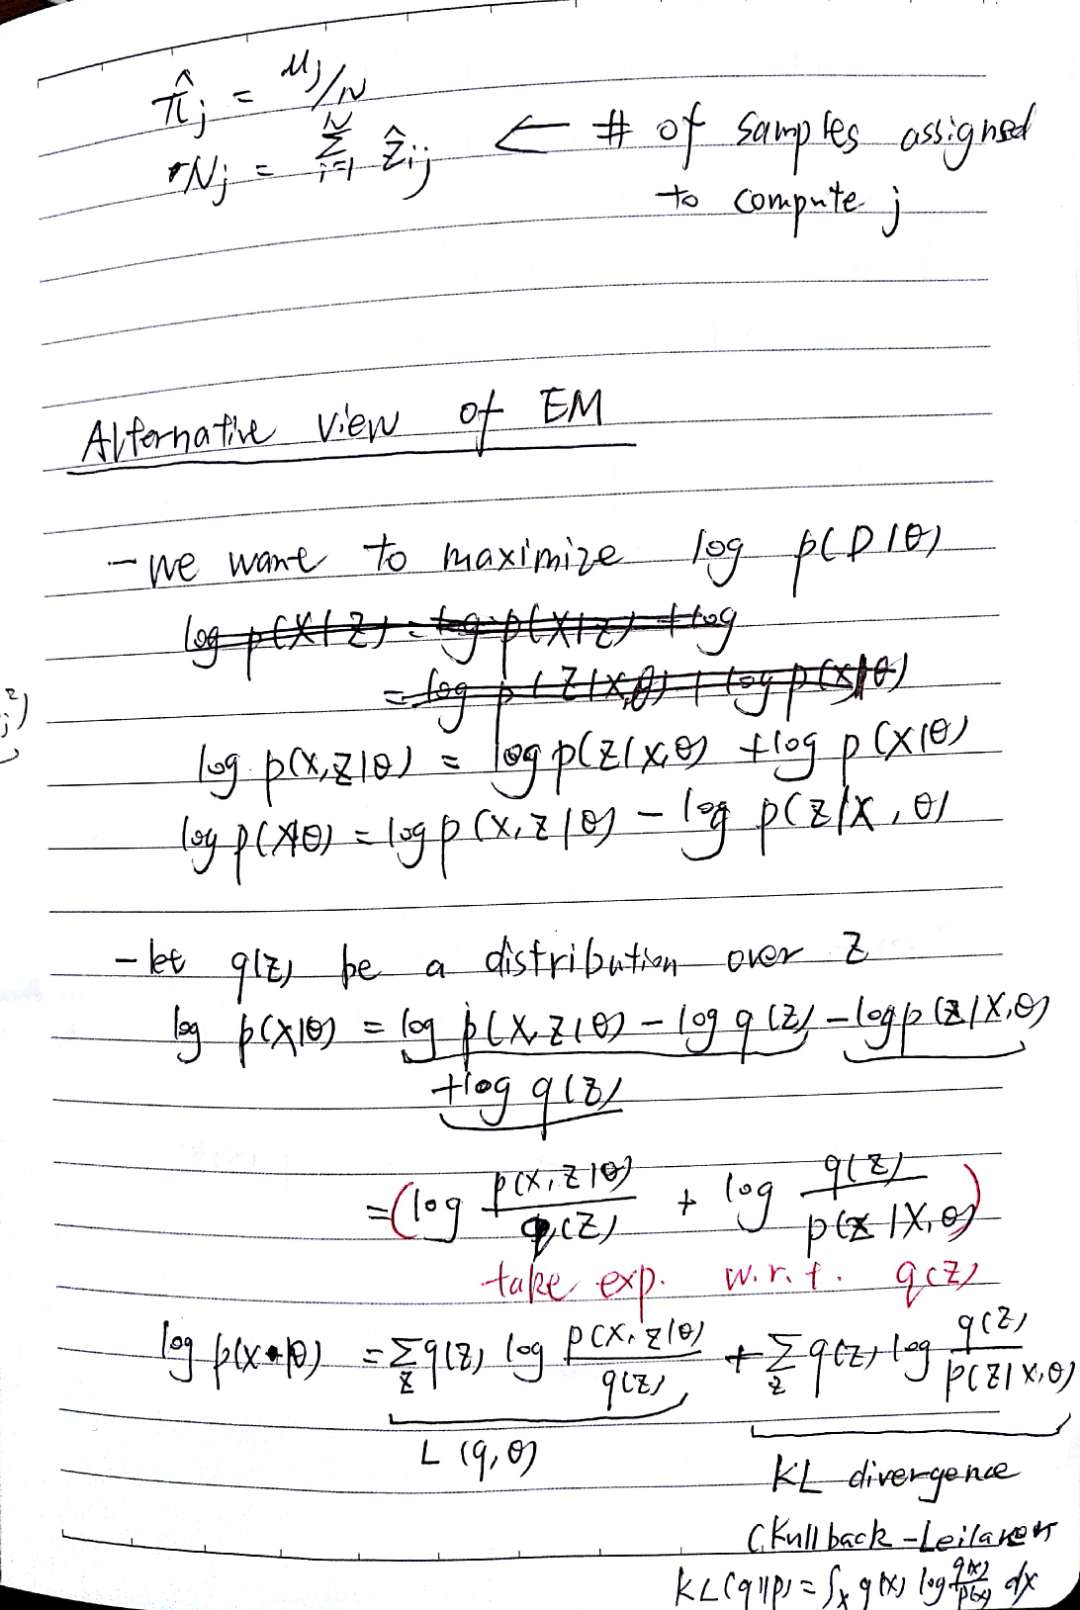 π̂j = Nj/N
Nj = Σ_{i=1}^{N} ẑij ← # of samples assigned
to compute j
Alternative view of EM
- we want to maximize log p(D|θ)
log p(X|Z) = log p(X|Z) + log
= log p(Z|X,θ) + log p(X|θ)
log p(X,Z|θ) = log p(Z|X,θ) + log p(X|θ)
log p(X|θ) = log p(X,Z|θ) - log p(Z|X,θ)
- let q(Z) be a distribution over Z
log p(X|θ) = log p(X,Z|θ) - log q(Z) - log p(Z|X,θ)
+ log q(Z)
= (log p(X,Z|θ)/q(Z) + log q(Z)/p(Z|X,θ))
take exp. w.r.t. q(Z)
log p(X|θ) = Σ_Z q(Z) log p(X,Z|θ)/q(Z) + Σ_Z q(Z) log q(Z)/p(Z|X,θ)
L(q,θ)
KL divergence
(Kullback-Leilarer
KL(q||p) = ∫_x q(x) log q(x)/p(x) dx